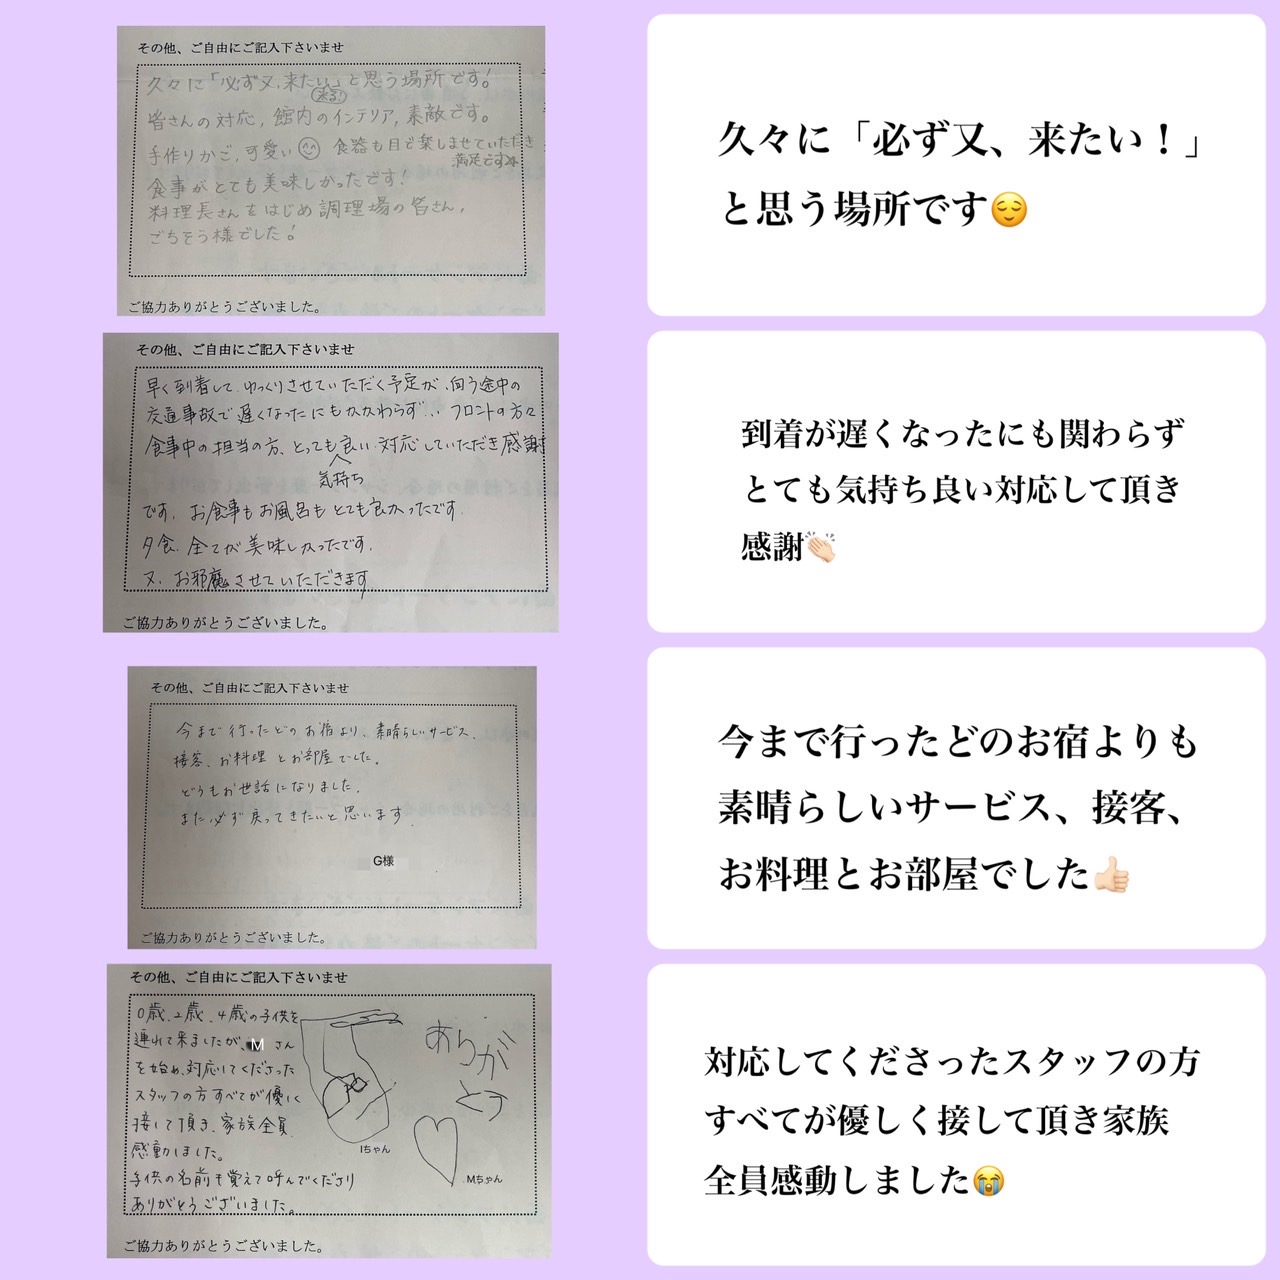 その他、ご自由にご記入下さいませ
久々に「必ず又、来たい」と思う場所です!
来る!
皆さんの対応,館内のインテリア,素敵です。
手作りかご,可愛い 食器も目で楽しませていただき
満足です
食事がとても美味しかったです!
料理長さんをはじめ調理場の皆さん,
ごちそう様でした!
ご協力ありがとうございました。
久々に「必ず又、来たい！」
と思う場所です😌
その他、ご自由にご記入下さいませ
早く到着して、ゆっくりさせていただく予定が、向う途中の
交通事故で遅くなったにもかかわらず、、フロントの方々
食事中の担当の方、とても良い対応していただき感謝
気持ち
です。お食事もお風呂もとても良かったです。
夕食、全てが美味しかったです。
又、お邪魔させていただきます
ご協力ありがとうございました。
到着が遅くなったにも関わらず
とても気持ち良い対応して頂き
感謝👏🏻
その他、ご自由にご記入下さいませ
今まで行ったどのお宿より、素晴らしいサービス、
接客、お料理とお部屋でした。
どうもお世話になりました。
また必ず戻ってきたいと思います。
G様
ご協力ありがとうございました。
今まで行ったどのお宿よりも
素晴らしいサービス、接客、
お料理とお部屋でした👍🏻
その他、ご自由にご記入下さいませ
0歳、2歳、4歳の子供を
連れて来ましたが、M さん
を始め、対応してくださった
スタッフの方すべてが優しく
接して頂き、家族全員
感動しました。
子供の名前も覚えて呼んでくださり
ありがとうございました。
ありが
とう
Iちゃん
Mちゃん
ご協力ありがとうございました。
対応してくださったスタッフの方
すべてが優しく接して頂き家族
全員感動しました😭